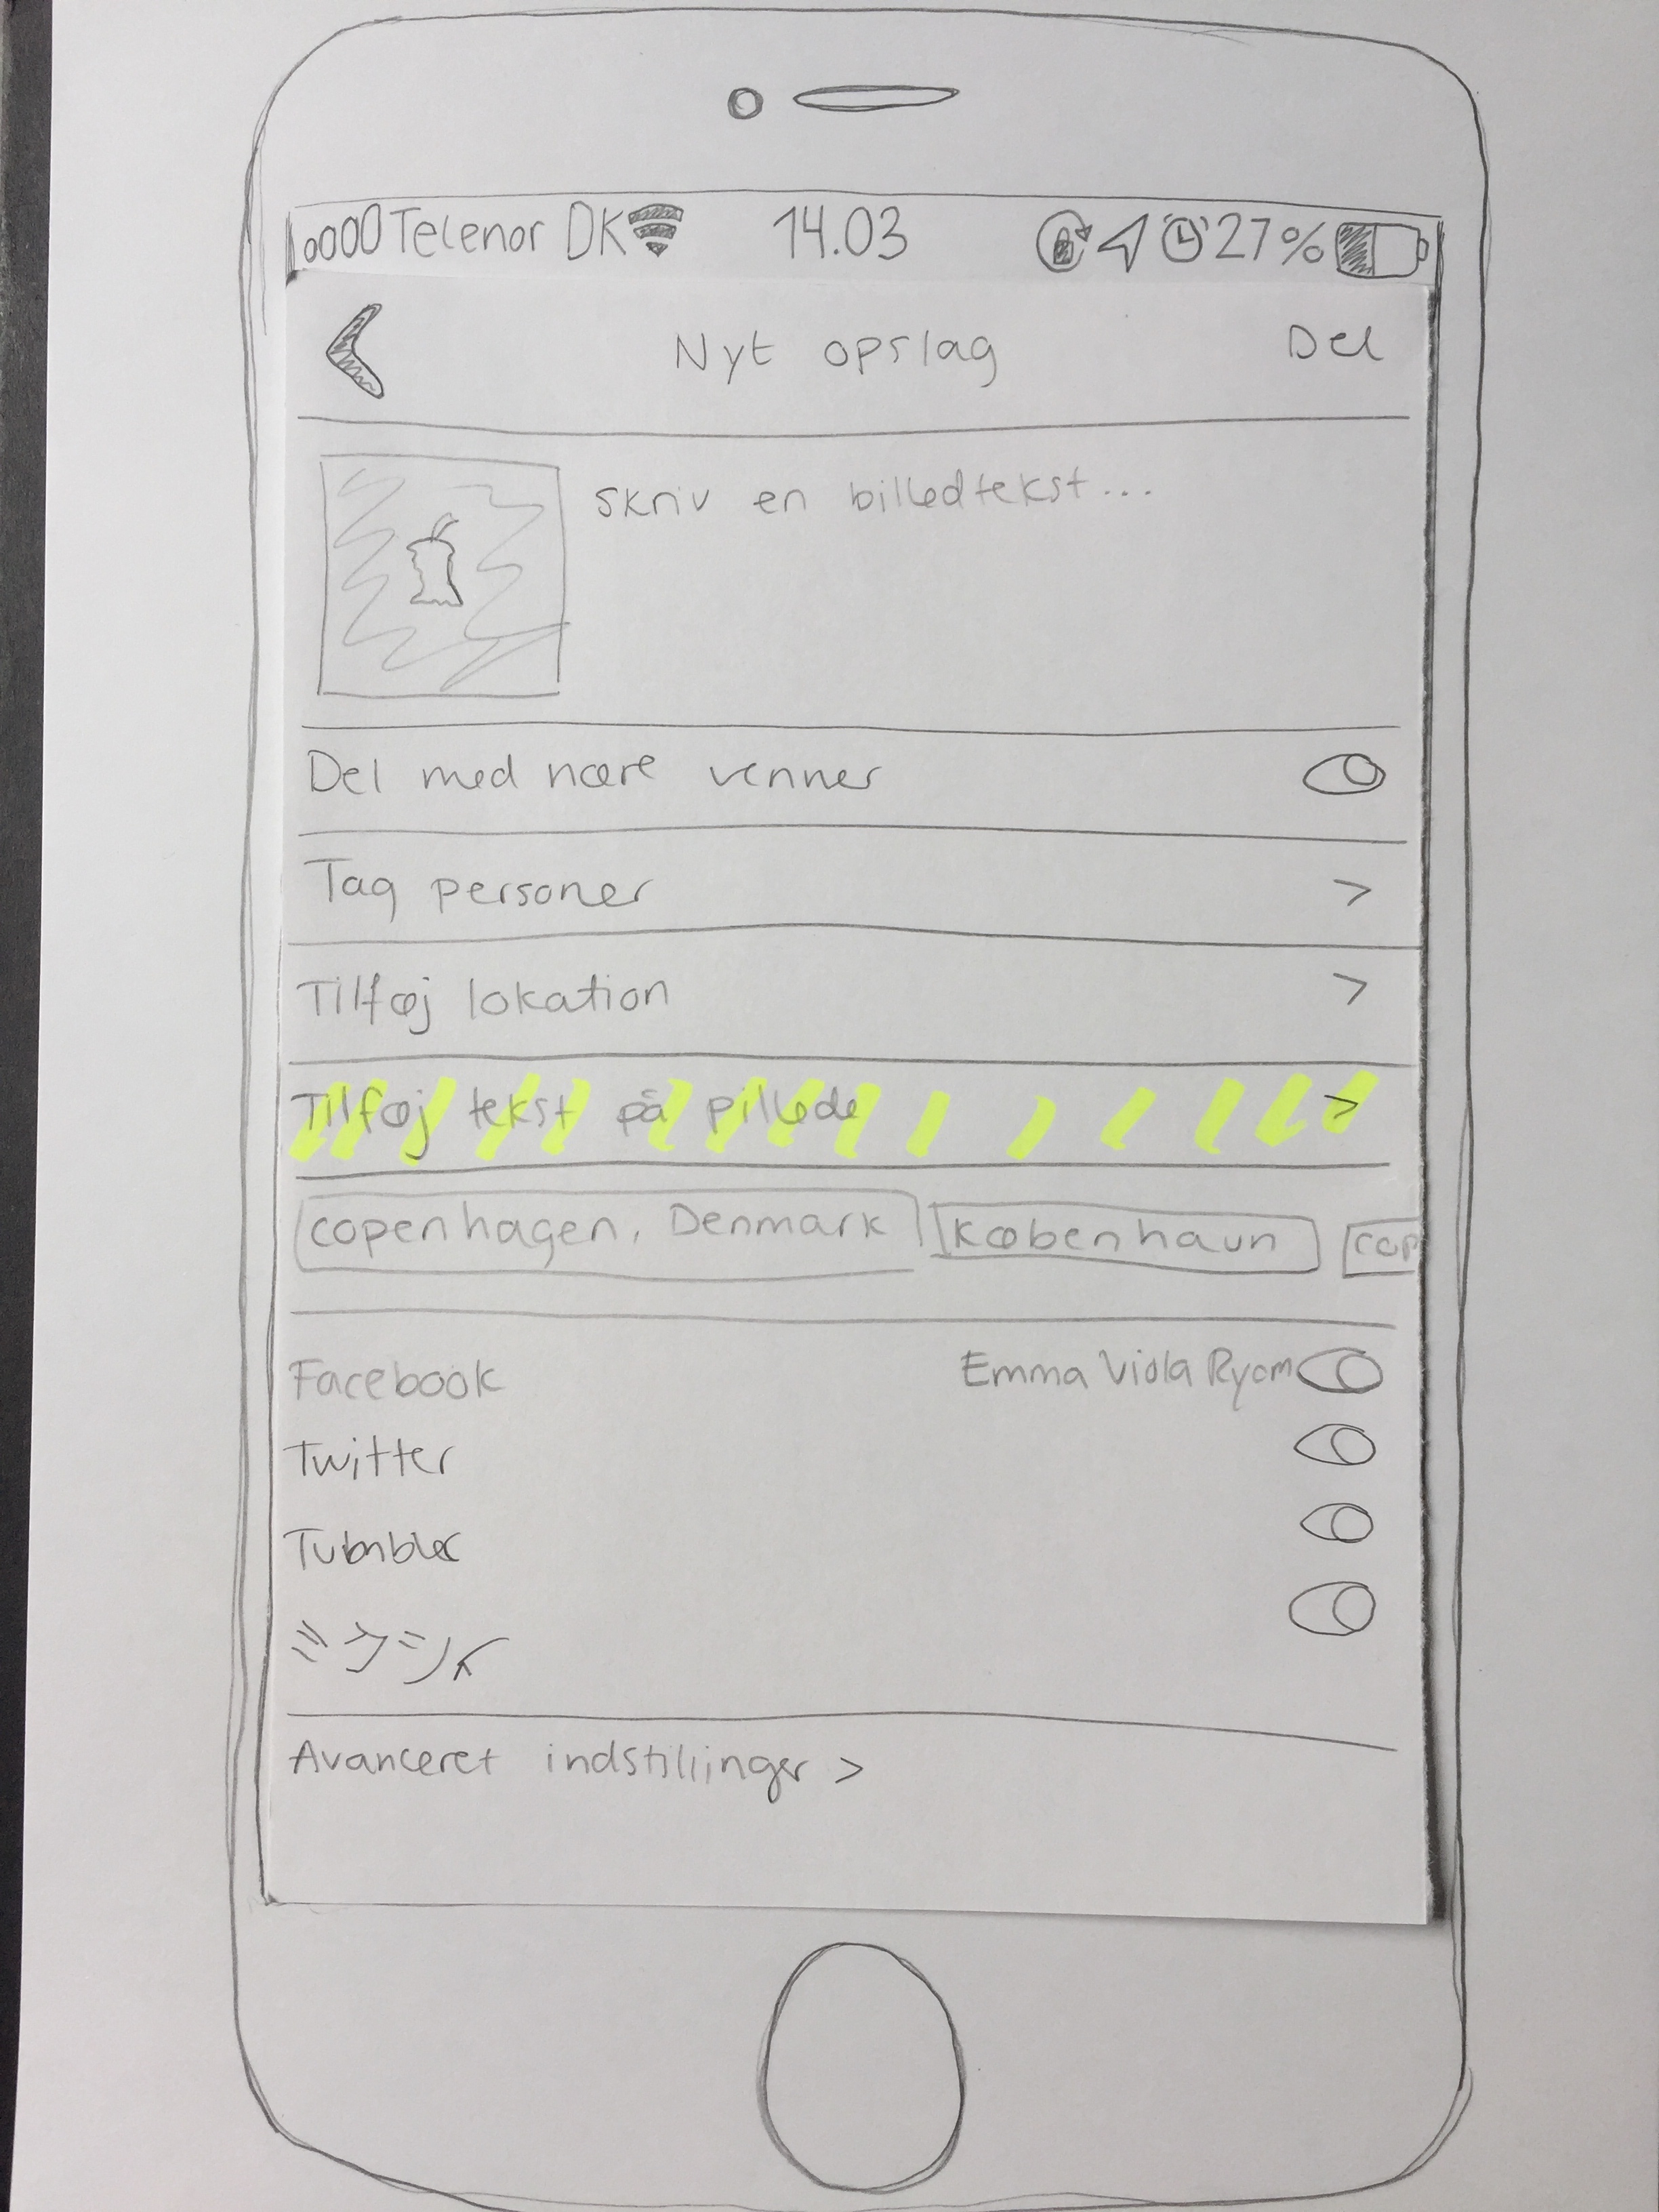 Telenor DK 14.03 27%
Nyt opslag Del
Skriv en billedtekst...
Del med nære venner
Tag personer >
Tilføj lokation >
Tilføj tekst på pillede >
Copenhagen, Denmark København cop
Facebook Emma Viola Ryom
Twitter
ミクシィ
Avanceret indstillinger >